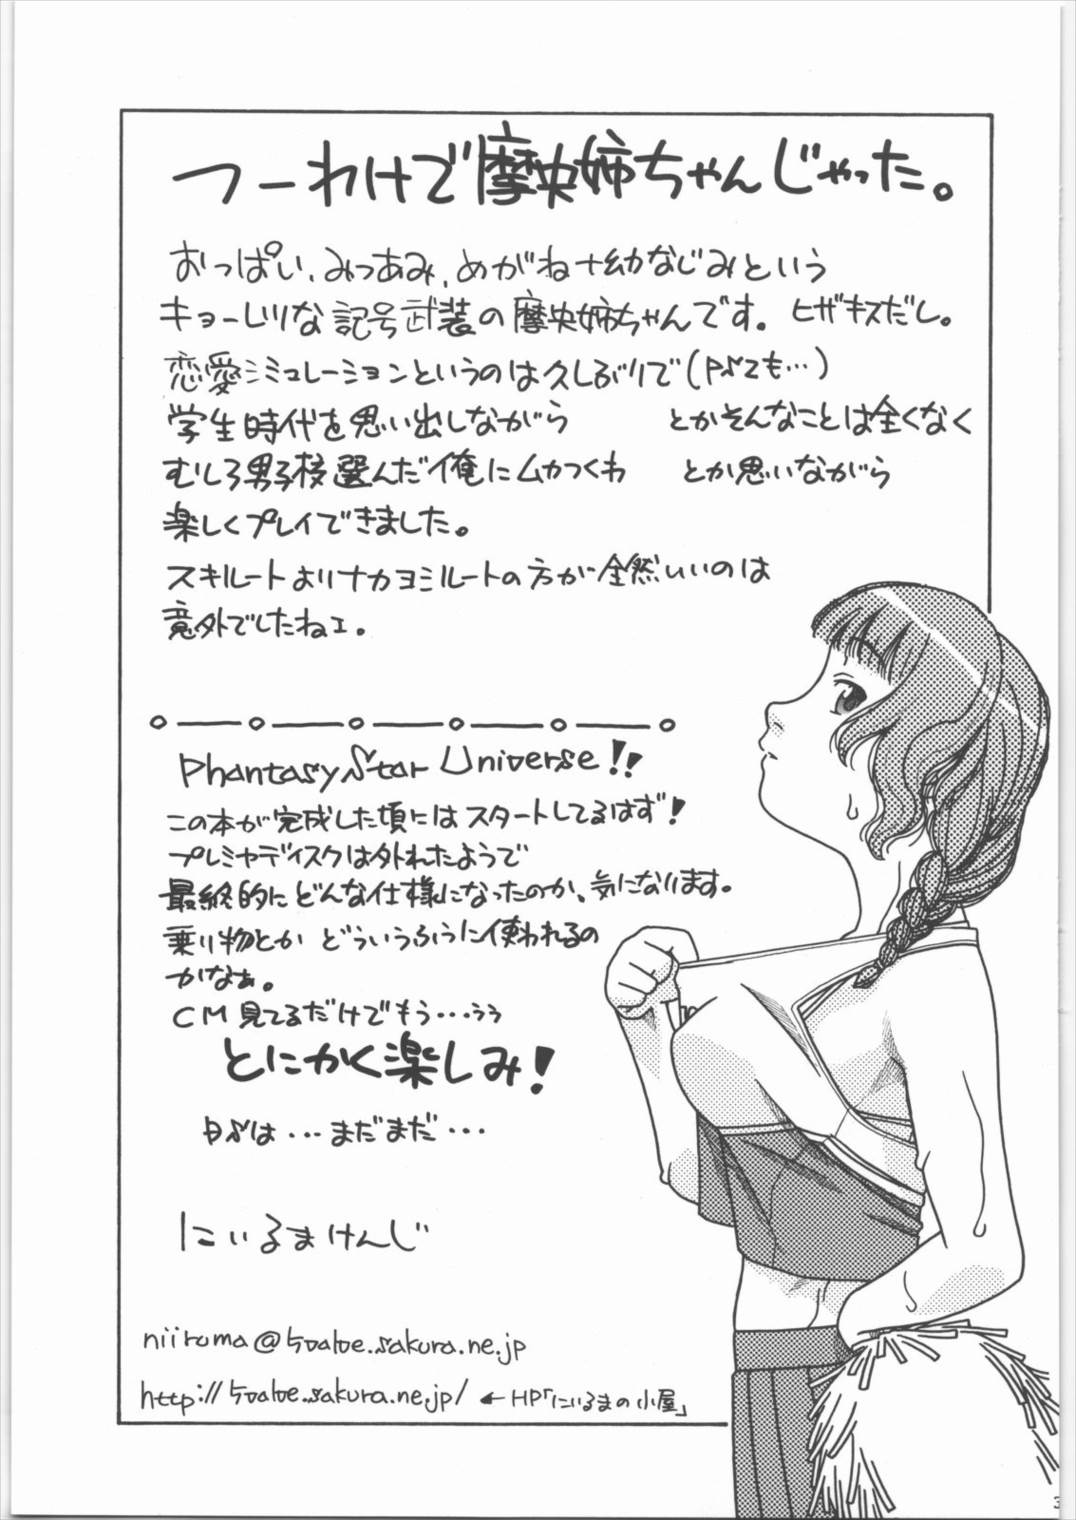 つーわけで摩央姉ちゃんじゃった。
おっぱい、みつあみ、めがね+幼なじみという
キョーレツな記号武装の摩央姉ちゃんです。ヒザキスだし。
恋愛シミュレーションというのは久しぶりで(PS2も…)
学生時代を思い出しながら とかそんなことは全くなく
むしろ男子校選んだ俺にムカつくわ とか思いながら
楽しくプレイできました。
スキルートよりナカヨシルートの方が全然いいのは
意外でしたねェ。
Phantasy Star Universe!!
この本が完成した頃にはスタートしてるはず!
プレミヤディスクは外れたようで
最終的にどんな仕様になったのか、気になります。
乗り物とか どういうふうに使われるの
かなぁ。
CM見てるだけでもう…うぅ
とにかく楽しみ!
は…まだまだ…
にいるまけんじ
niiruma@ .sakura.ne.jp
http:// .sakura.ne.jp/ ←HP「にいるまの小屋」
3